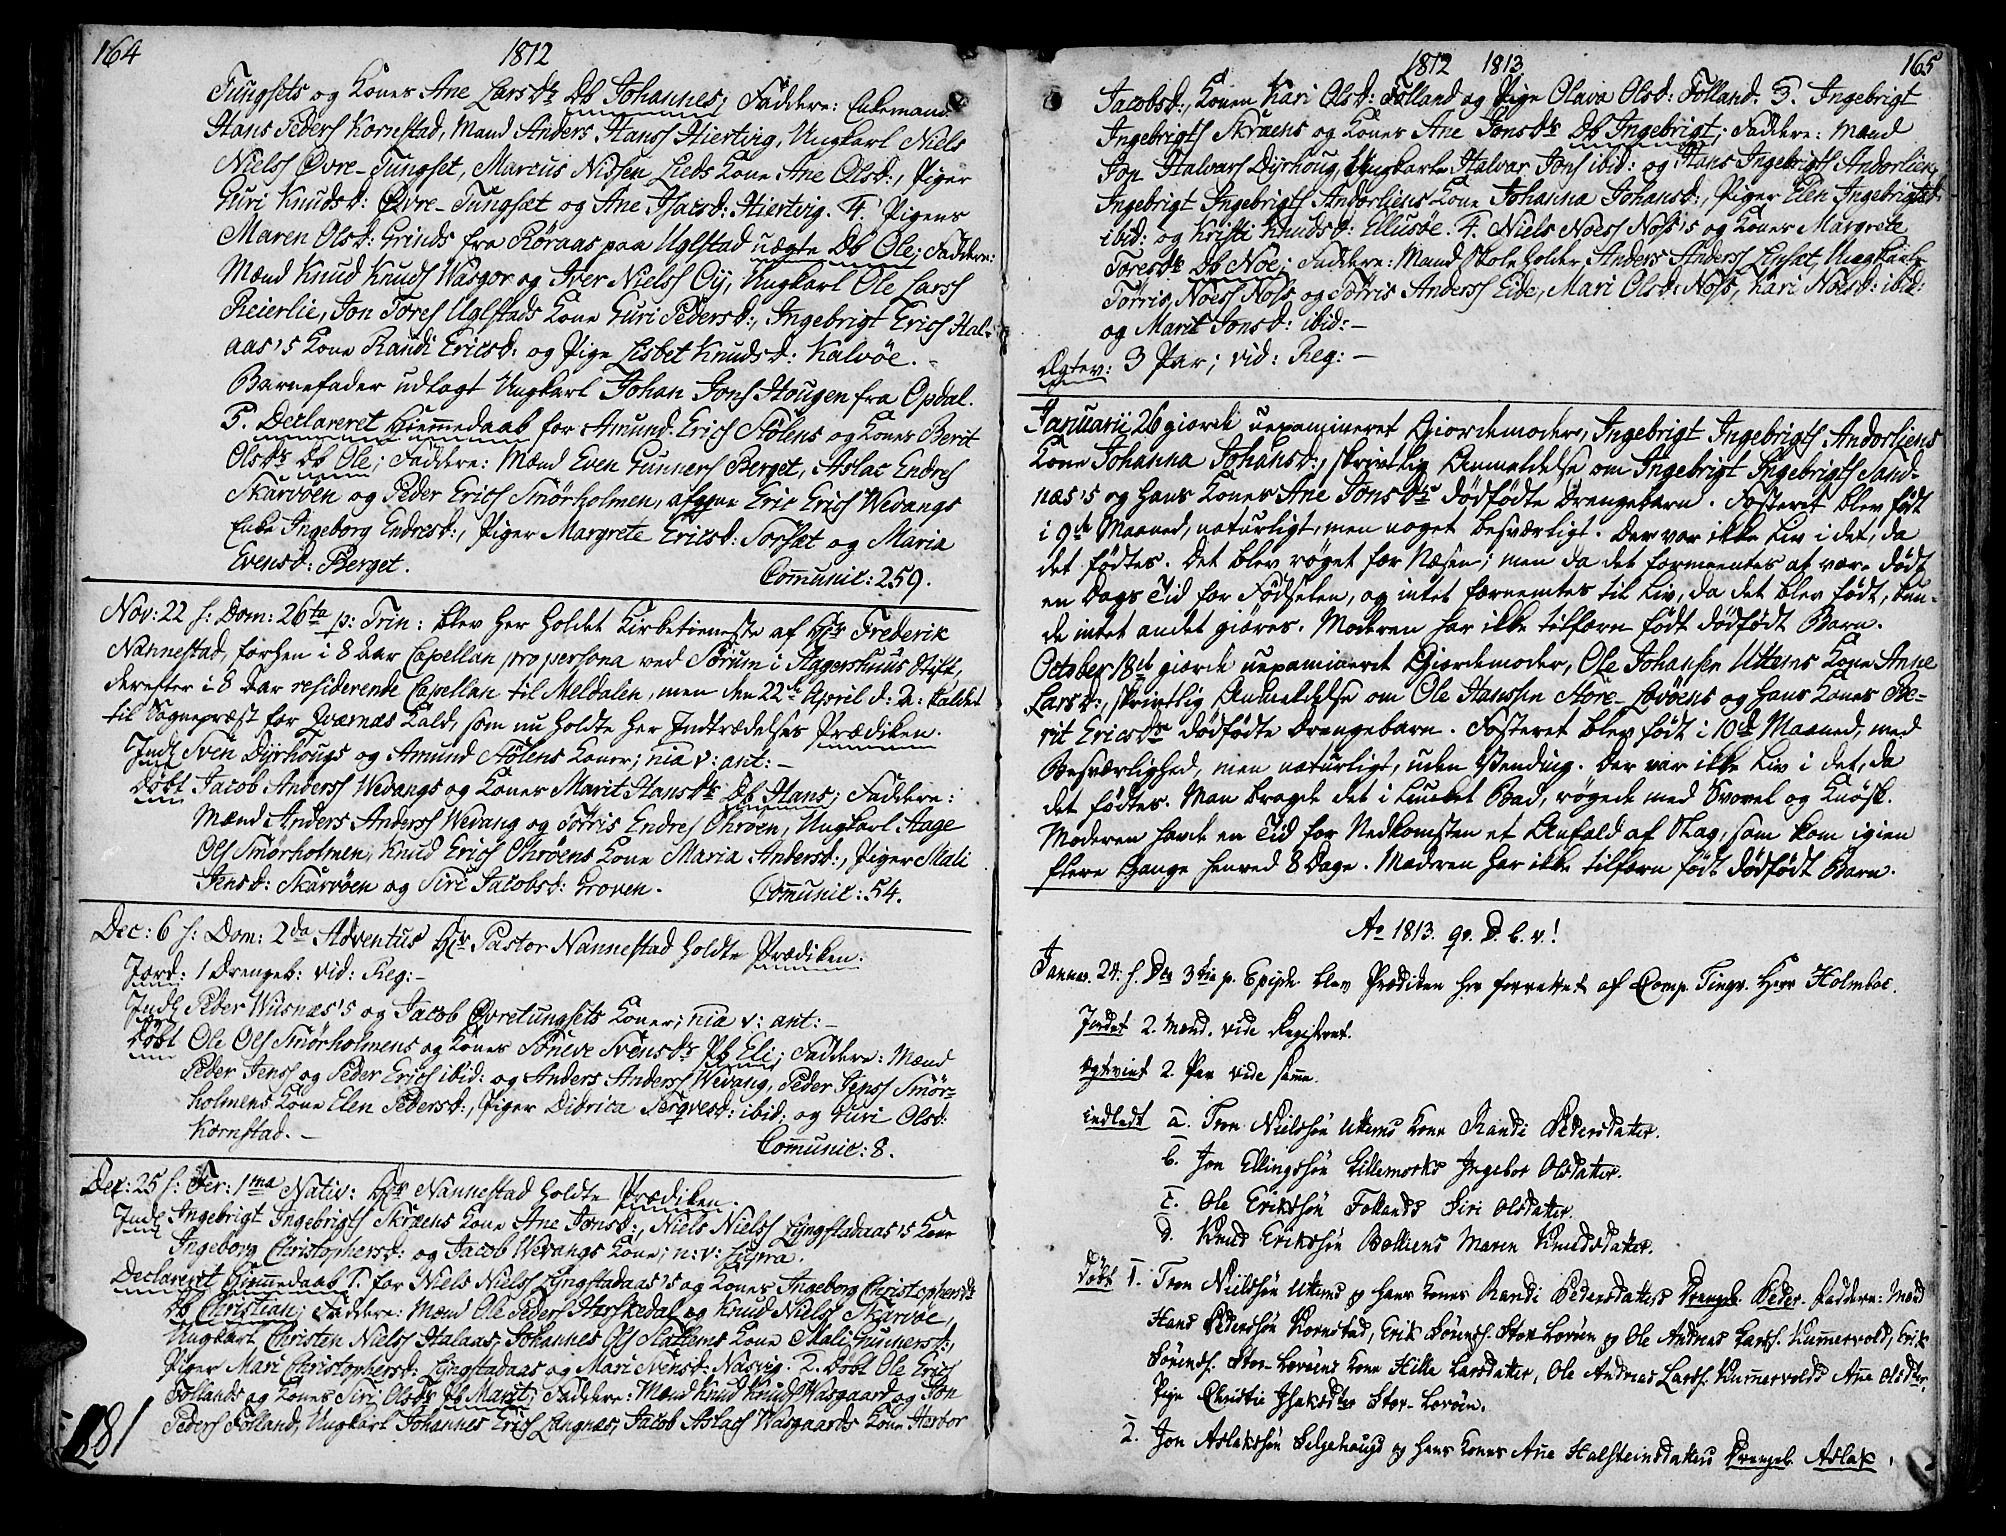 164
1812
Tungsets og Kones Ane Larsdr Db Johannes; Faddere: Enkemand
Hans Peders Kornstad, Mand Anders Hans Hiertvig, Ungkarl Niels
Niels Øvre-Tungset, Marcus Nissen Leeds Kone Ane Olsd:, Piger
Guri Knudsd: Øvre-Tungsæt og Ane Isacsd: Hiertvig. 4. Pigens
Maren Olsd: Grinds fra Røraas paa Uglstad uægte Db Ole; Faddere:
Mænd Knud Knuds Wasgor og Iver Niels Oÿ, Ungkarl Ole Lars
Reierlie, Jon Tores Uglstads Kone Guri Pedersd:, Ingebrigt Erics Hal-
aas's Kone Randi Ericsd: og Pige Lisbet Knudsd: Kalvøe. -
Barnefader udlagt Ungkarl Johan Jons Hougen fra Opdal.
5. Declareret Hiemmedaab for Amund Erics Stølens og Kones Berit
Olsdrs Db Ole; Faddere: Mænd Even Gunners Berget, Aslac Endres
Skarvøen og Peder Erics Smørholmen, afggne Eric Erics Wevangs
Enke Ingeborg Endresd:, Piger Margrete Ericsd: Torset og Maria
Evensd: Berget.
Communic: 259.
Nov: 22 h: Dom: 26ta p: Trin: blev her holdet Kirketieneste af Hr Frederik
Nannestad, forhen i 8 Aar Capellan pro persona ved Sørum i Aggershuus Stift,
derefter i 8 Aar residerende Capellan til Meldalen, men den 22de April d: A: kaldet
til Sognepræst for Qværnæs Kald, som nu holdte her Indtrædelses Prædiken.
Indl Sven Dÿrhougs og Amund Stølens Koner; nia v: ant: -
Døbt Jacob Anders Wevangs og Kones Marit Hansdrs Db Hans; Faddere:
Mænd Anders Anders Wevang og Tørris Endres Ohrøen, Ungkarl Aage
Ols Smørholmen, Knud Erics Ohrøens Kone Maria Andersd:, Piger Mali
Jensd: Skarvøen og Siri Jacobsd: Groven.
Communic: 54.
Dec: 6 h: Dom: 2da Adventus Hr Pastor Nannestad holdte Prædiken:
Jord: 1 Drengeb: vid: Reg: -
Indl Peder Wiisnæs's og Jacob Øvretungsets Koner; nia v: ant: -
Døbt Ole Ols Smørholmens og Kones Søneve Svensdrs Pb Eli; Faddere: Mænd
Peder Jens og Peder Erics ibid: og Anders Anders Wevang, Peder Jens Smør-
holmens Kone Elen Pedersd:, Piger Didrica Torgersd: ibid: og Guri Olsd:
Kornstad. -
Communic: 8.
Dec: 25 h: Fer: 1ma Nativ: Hr Nannestad holdte Prædiken.
Indl Ingebrigt Ingebrigts Skrøens Kone Ane Jonsd:, Niels Niels Lÿngstadaas's Kone
Ingeborg Christophersd: og Jacob Wevangs Kone; n: v: supra.
Declareret Hiemmedaab 1. for Niels Niels Lÿngstadaas's og Kones Ingeborg Christophersdrs
Db Christian; Faddere: Mænd Ole Peders Heskedal og Knud Niels Skarvøe,
Ungkarl Christen Niels Halaas, Johannes Ols Slattems Kone Mali Gunnersd:,
Piger Mari Christophersd: Lÿngstadaas og Mari Svensd: Nasvig. 2. Døbt Ole Erics
Follands og Kones Siri Olsdrs Pb Marit; Faddere: Mænd Knud Knuds Wasgaard og Jon
Peders Folland, Ungkarl Johannes Erics Langnæs, Jacob Aslacs Wasgaards Kone Herbor
281
1812 1813
165
Jacobsd:, Konen Kari Olsd: Følland og Pige Olava Olsd: Følland. 3. Ingebrigt
Ingebrigts Skrøens og Kones Ane Jonsdrs Db Ingebrigt; Faddere: Mænd
Jon Halvars Dÿrhoug, Ungkarle Halvar Jons ibid: og Hans Ingebrigts Andorlien,
Ingebrigt Ingebrigts Andorliens Kone Johanna Johansd:, Piger Elen Ingebrigtsd:
ibid: og Kristi Knudsd: Ellusøe. 4. Niels Noes Nøss's og Kones Margrete
Toresdrs Db Noe; Faddere: Mand Skoleholder Anders Anders Lÿset, Ungkarle
Tørris Noes Nøss og Tørris Anders Eide, Mari Olsd: Nøss, Kari Noesd: ibid:
og Marit Jonsd: ibid: -
Ægtev: 3 Par; vid: Reg: -
Januarii 26 giorde uexamineret Giordemoder, Ingebrigt Ingebrigts Andorliens
Kone Johanna Johansd:, skrivtlig Anmeldelse om Ingebrigt Ingebrigts Sand-
næs's og hans Kones Ane Jonsdrs dødfødte Drengebarn. Fosteret blev født
i 9de Maaned, naturligt, men noget besværligt. Der var ikke Liv i det, da
det fødtes. Det blev røget for Næsen; men da det formeentes at være dødt
en Dags Tid for Fødselen, og intet fornemtes til Liv, da det blev født, kun-
de intet andet giøres. Moderen har ikke tilforn født dødfødt Barn.
October 18de giorde uexamineret Giordemoder, Ole Johansen Uttems Kone Anne
Larsd:, skrivtlig Anmeldelse om Ole Hanssen Store-Lovøens og hans Kones Be-
rit Ericsdrs dødfødte Drengebarn. Fosteret blev født i 10de Maaned, med
Besværlighed, men naturligt, uden Vending. Der var ikke Liv i det, da
det fødtes. Man bragde det i lunket Bad, røgede med Svovel og Knøsk.
Moderen havde en Tid for Nedkomsten et Anfald af Slag, som kom igien
flere Gange henved 8 Dage. Moderen har ikke tilforn født dødfødt Barn.
Ao 1813. qv. D. b. v.!
Januar. 24. h. Dca 3tia p. Epiph. blev Prædiken her forrettet af Comp. Tingv. Herr Holmboe.
Jordet 2. Mænd. vide Registret.
Ægteviet 2. Par vide samme.
indledt a. Tron Nielsøn Uttems Kone Randi Pedersdatter.
b. Jon Ellingsøn Lillemorks Ingebor Olsdatter.
c. Ole Erikssøn Follands Siri Olsdatter.
d. Knud Erikssøn Bolliens Maren Knudsdatter.
Døbt 1. Tron Nielsøn Uttems og hans Kones Randi Pedersdatters Drengeb. Peder. Faddere: Mænd
Hans Pedersøn Kornstad, Erik Sörens. Stor-Lovöen og Ole Andreas Larss. Kummervold, Erik
Sörends. Stor-Lovöens Kone Hille Larsdatter, Ole Andreas Larss. Kummervolds Ane Olsdter,
Pige Christie Isaksdter Stor-Lovöen.
2. Jon Aslakssøn Helgehougs og hans Kones Ane Halsteinsdatters Drengeb. Aslak,